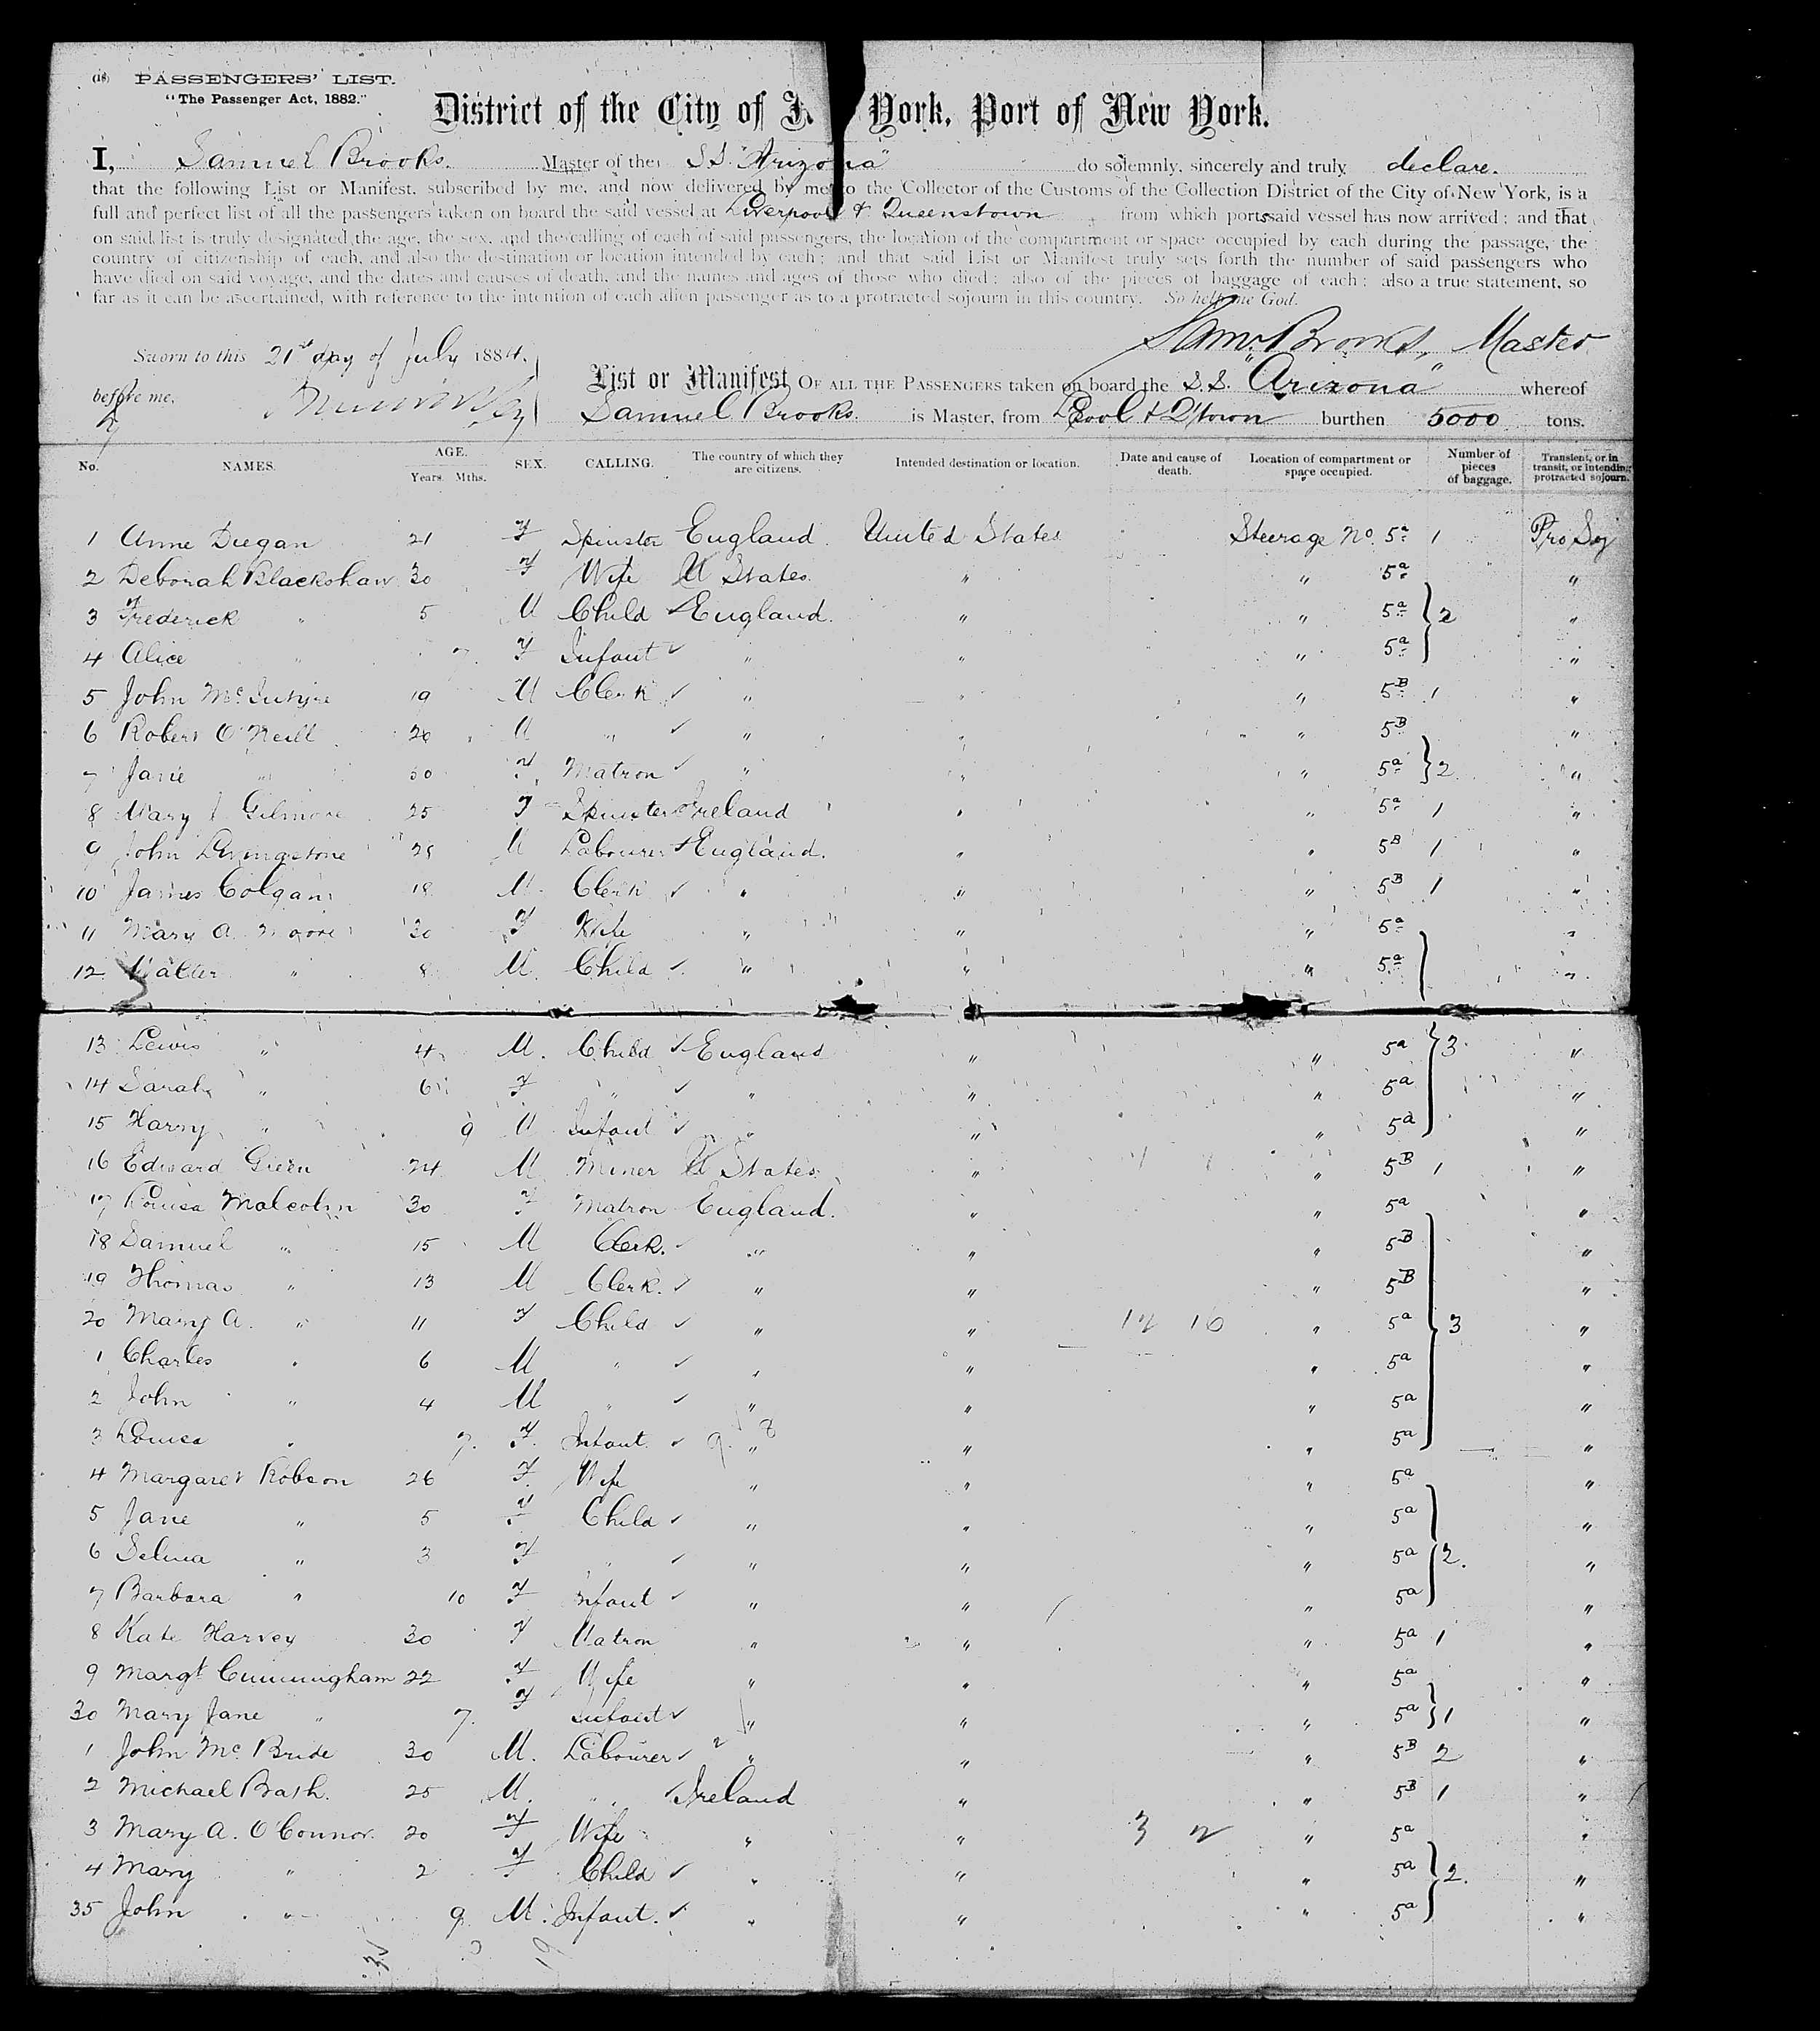 (18) PASSENGERS' LIST.
"The Passenger Act, 1882."
District of the City of N York, Port of New York.
I, Samuel Brooks. Master of the S.S. "Arizona" do solemnly, sincerely and truly declare.
that the following List or Manifest, subscribed by me, and now delivered by me to the Collector of the Customs of the Collection District of the City of New York, is a
full and perfect list of all the passengers taken on board the said vessel at Liverpool & Queenstown from which port said vessel has now arrived; and that
on said list is truly designated the age, the sex, and the calling of each of said passengers, the location of the compartment or space occupied by each during the passage, the
country of citizenship of each, and also the destination or location intended by each; and that said List or Manifest truly sets forth the number of said passengers who
have died on said voyage, and the dates and causes of death, and the names and ages of those who died; also of the pieces of baggage of each; also a true statement, so
far as it can be ascertained, with reference to the intention of each alien passenger as to a protracted sojourn in this country. So help me God.
Saml Brooks, Master
Sworn to this 21st day of July 1884.
before me,
List or Manifest OF ALL THE PASSENGERS taken on board the S.S. "Arizona" whereof
Samuel Brooks. is Master, from L'pool & Q'town burthen 5000 tons.
No. NAMES. AGE. Years. Mths. SEX. CALLING. The country of which they are citizens. Intended destination or location. Date and cause of death. Location of compartment or space occupied. Number of pieces of baggage. Transient, or in transit, or intending protracted sojourn.
1 Anne Deegan 21 F Spinster England. United States Steerage No. 5a 1 Pro Soj
2 Deborah Blackshaw 30 F Wife U States. " 5a "
3 Frederick " 5 M Child ✓ England. " " 5a 2 "
4 Alice " 7 F Infant ✓ " " " 5a "
5 John McIntyre 19 M Clerk ✓ " " " 5B 1 "
6 Robert O'Neill 20 M " ✓ " " " 5B "
7 Jane " 30 F Matron ✓ " " " 5a 2 "
8 Mary J Gilmore 25 F Spinster Ireland " " 5a 1 "
9 John Livingstone 28 M Labourer England. " " 5B 1 "
10 James Colgan 18 M Clerk ✓ " " " 5B 1 "
11 Mary A. Moore 30 F Wife " " " 5a "
12 Walter " 8 M. Child ✓ " " " 5a "
13 Lewis " 4 M. Child ✓ England " " 5a 3 "
14 Sarah " 6 F " ✓ " " " 5a "
15 Harry " 9 M Infant ✓ " " " 5a "
16 Edward Green 24 M Miner U States. " " 5B 1 "
17 Louisa Malcolm 30 F Matron England. " " 5a "
18 Samuel " 15 M Clerk. ✓ " " " 5B "
19 Thomas " 13 M Clerk. ✓ " " " 5B "
20 Mary A. " 11 F Child ✓ " " " 5a 3 "
1 Charles " 6 M " ✓ " " " 5a "
2 John " 4 M " ✓ " " " 5a "
3 Louisa " 7. F. Infant. ✓ " " " 5a "
4 Margaret Robson 26 F Wife " " " 5a "
5 Jane " 5 F Child ✓ " " " 5a "
6 Selina " 3 F " ✓ " " " 5a 2. "
7 Barbara " 10 F Infant ✓ " " " 5a "
8 Kate Harvey 30 F Matron " " " 5a 1 "
9 Margt Cunningham 22 F Wife " " " 5a "
30 Mary Jane " 7. F Infant ✓ " " " 5a 1 "
1 John Mc Bride 30 M. Labourer ✓ " " " 5B 2 "
2 Michael Bath. 25 M. " ✓ Ireland " " 5B 1 "
3 Mary A. O'Connor. 20 F Wife " " " 5a "
4 Mary " 2 F Child ✓ " " " 5a 2. "
35 John " 9 M. Infant. ✓ " " " 5a "